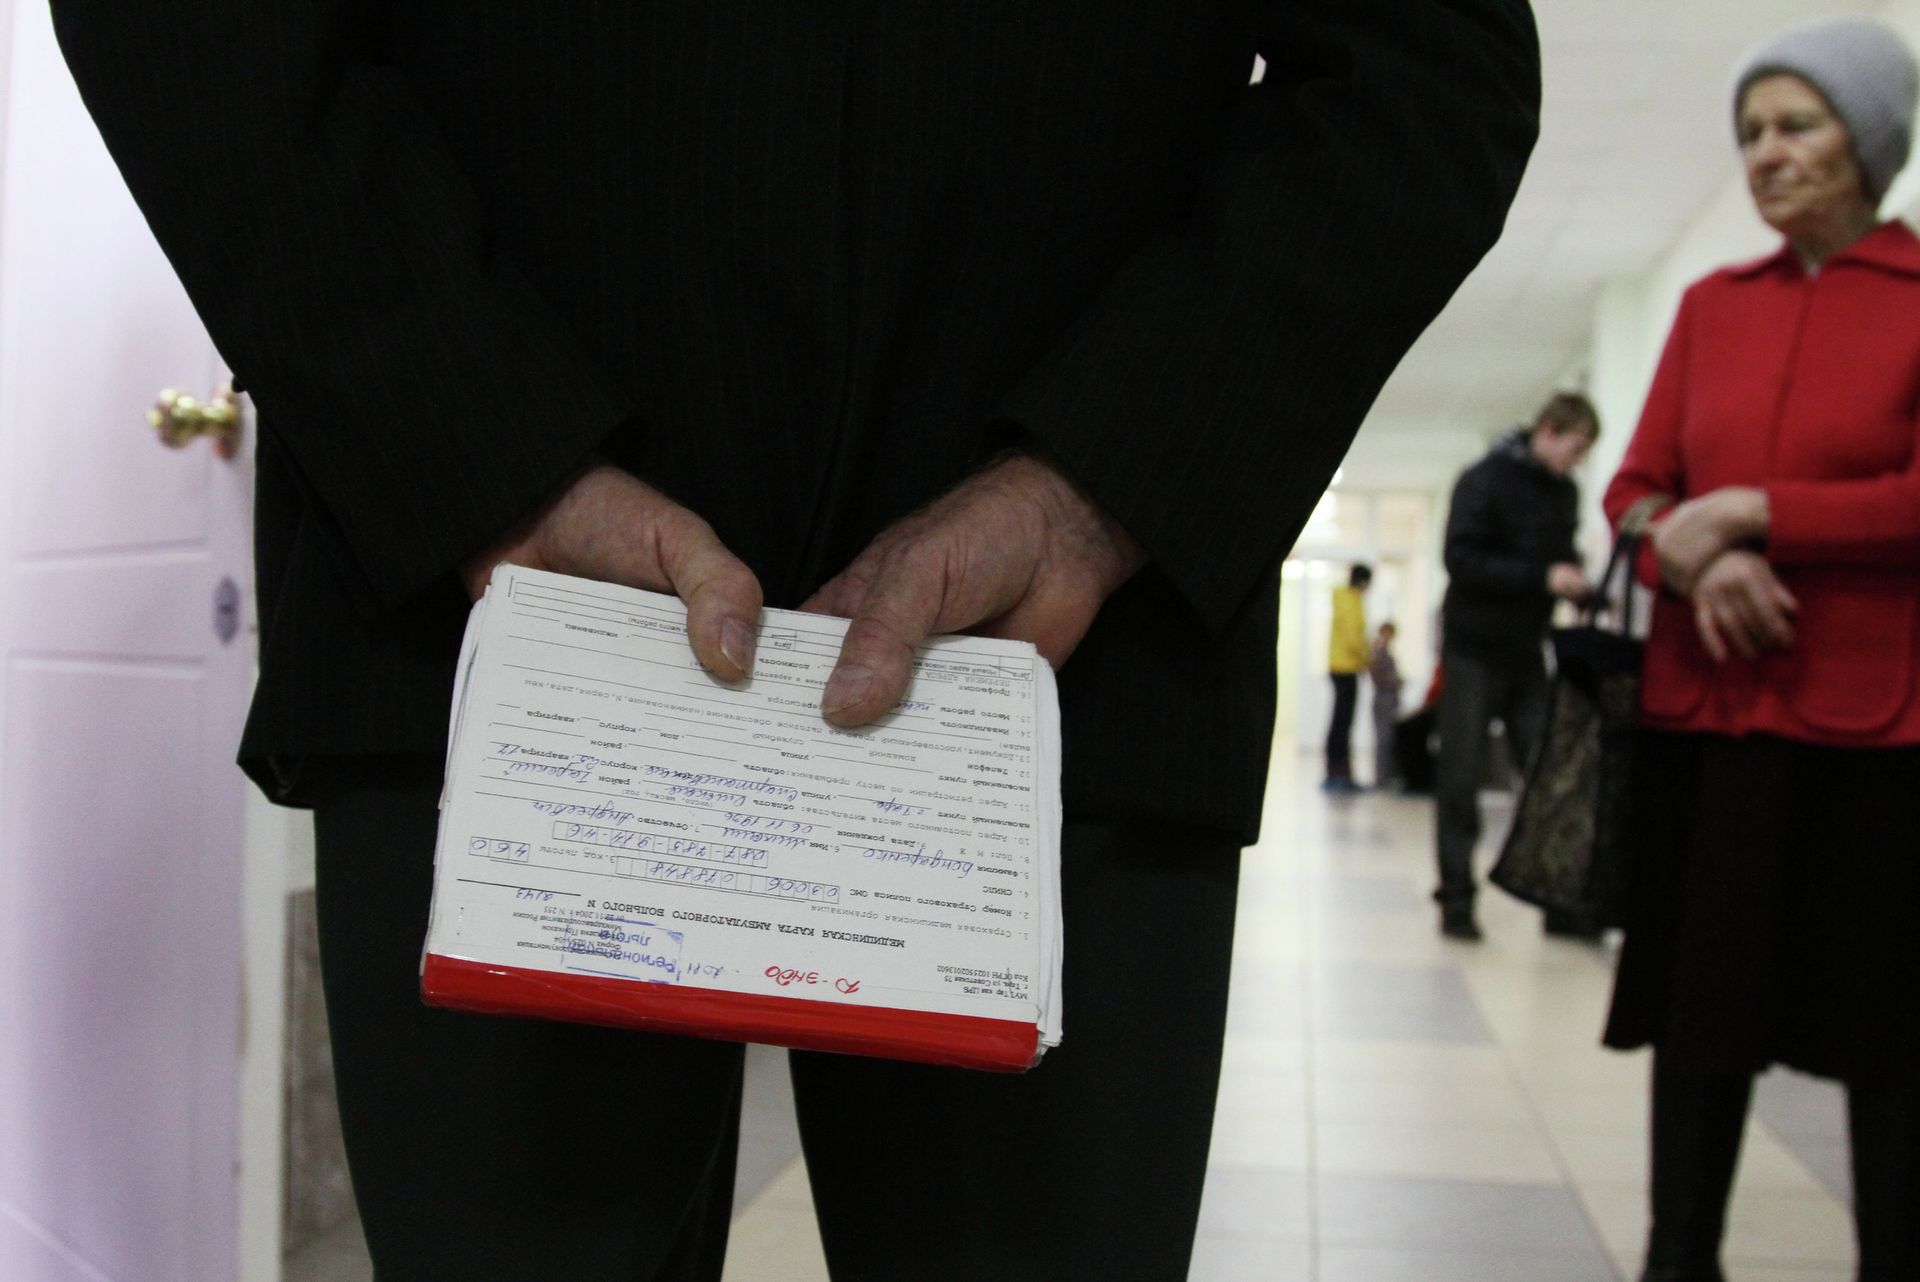 МУЗ Тарская ЦРБ
г. Тара, ул Советская 75
Код ОГРН 1025502013602
Д-ЭНДО
2011
Региональная
льгота
Медицинская документация
Форма N 025/у-04
Утверждена Приказом
Минздравсоцразвития России
от 22.11.2004 г. N 255
МЕДИЦИНСКАЯ КАРТА АМБУЛАТОРНОГО БОЛЬНОГО N 2143
1. Страховая медицинская организация
2. Номер Страхового полиса ОМС 03006 078848 3. код льготы 460
4. СНИЛС 087-783-914-46
5. Фамилия Бондаренко 6. Имя Михаил 7. Отчество Андреевич
8. Пол: М Ж 9. Дата рождения 06 11 1936 (число, месяц, год)
10. Адрес постоянного места жительства: область Омская, район Тарский,
населенный пункт г. Тара, улица Спартаковская, корпус, квартира 12
11. Адрес регистрации по месту пребывания: область, район,
населенный пункт, улица, дом, корпус, квартира
12. Телефон домашний служебный
13. Документ, удостоверяющий право на льготное обеспечение (наименование, N, серия, дата, кем
выдан)
14. Инвалидность
15. Место работы
16. Профессия, должность, иждивенец
17. ПЕРЕМЕНА АДРЕСА И
Дата Новый адрес Дата